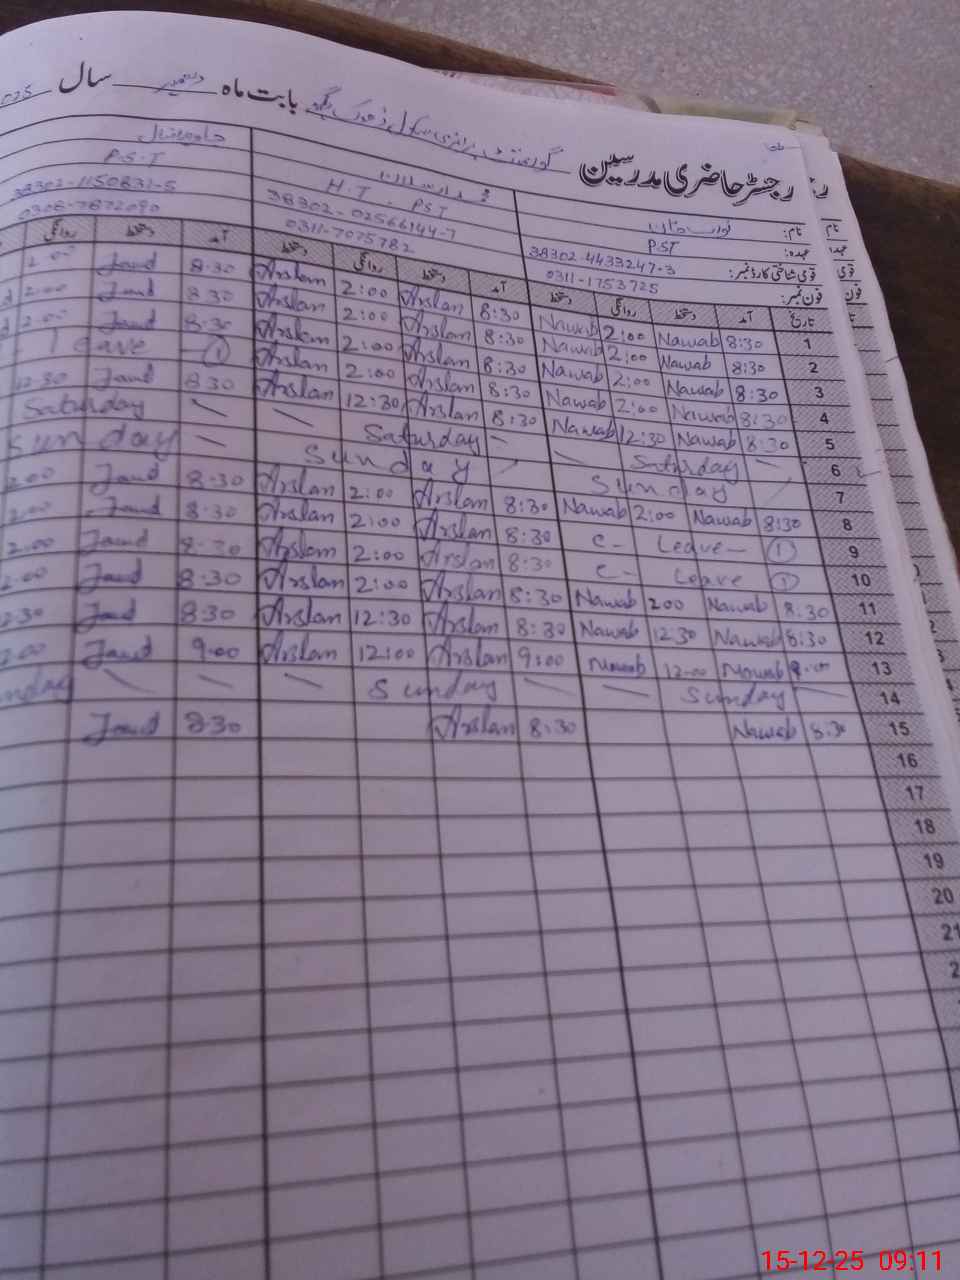 رجسٹر حاضری مدرسین گورنمنٹ پرائمری سکول ڈھوک بابت ماہ دسمبر سال 025
نام: نواب خان
عہدہ: PST H.T - PST P.S.T
قومی شناختی کارڈ نمبر: 38302-4433247-3 38302-0256644-7 38302-1150832-5
فون نمبر: 0311-1753725 0311-7075782 0308-7872090
تاریخ آمد دستخط روانگی دستخط آمد دستخط روانگی دستخط آمد دستخط روانگی
1 8:30 Nawab 2:00 Nawab 8:30 Arslan 2:00 Arslan 8:30 Jawd 2:00
2 8:30 Nawab 2:00 Nawab 8:30 Arslan 2:00 Arslan 8:30 Jawd 2:00
3 8:30 Nawab 2:00 Nawab 8:30 Arslan 2:00 Arslan 8:30 Jawd 2:00
4 8:30 Nawab 2:00 Nawab 8:30 Arslan 2:00 Arslan Leave 1
5 8:30 Nawab 12:30 Nawab 8:30 Arslan 12:30 Arslan 8:30 Jawd 12:30
6 Saturday Saturday Saturday
7 Sunday Sunday Sunday
8 8:30 Nawab 2:00 Nawab 8:30 Arslan 2:00 Arslan 8:30 Jawd 2:00
9 C- Leave- 1 8:30 Arslan 2:00 Arslan 8:30 Jawd 2:00
10 C- Leave 1 8:30 Arslan 2:00 Arslan 8:30 Jawd 2:00
11 8:30 Nawab 200 Nawab 8:30 Arslan 2:00 Arslan 8:30 Jawd 2:00
12 8:30 Nawab 12:30 Nawab 8:30 Arslan 12:30 Arslan 8:30 Jawd 12:30
13 9:00 Nawab 12:00 Nawab 9:00 Arslan 12:00 Arslan 9:00 Jawd
14 Sunday Sunday nday
15 8:30 Nawab 8:30 Arslan 8:30 Jawd
16
17
18
19
20
21
2
15-12-25 09:11